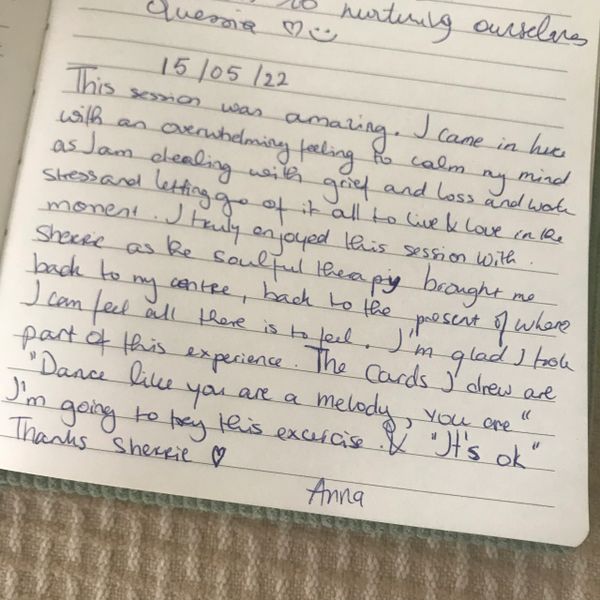 to nurturing ourselves
Querria ♡☺
15/05/22
This session was amazing. I came in here
with an overwhelming feeling to calm my mind
as I am dealing with grief and loss and work
stress and letting go of it all to live & love in the
moment. I truly enjoyed this session with
Sherrie as the soulful therapy brought me
back to my centre, back to the present of where
I can feel all there is to feel. I'm glad I took
part of this experience. The cards I drew are
"Dance like you are a melody, you are"
I'm going to try this excercise. & "It's ok"
Thanks Sherrie ♡
Anna